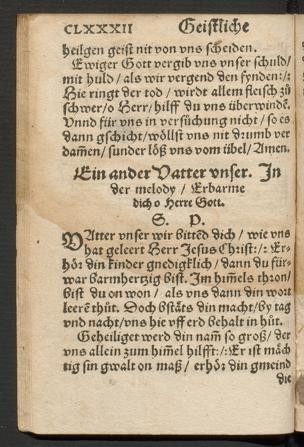 CLXXXII Geistliche
heilgen geist nit von vns scheiden.
Ewiger Gott vergib vns vnser schuld/
mit huld / als wir vergend den synden:/:
Hie ringt der tod / wirdt allem fleisch zů
schwer/o Herr/hilff du vns überwindē.
Vnnd für vns in versůchung nicht / so es
dann gschicht/wöllst vns nit drumb ver
dam̄en/sunder löß vns vom übel/ Amen.
Ein ander Vatter vnser. In
der melody / Erbarme
dich o Herre Gott.
S. P.
VAtter vnser wir bittēd dich / wie vns
hat geleert Herr Jesus Christ:/: Er-
hör din kinder gnedigklich / dann du für-
war barmhertzig bist. Im him̄els thron/
bist du on won / als vns dann din wort
leerē thůt. Doch bstäts din macht/by tag
vnd nacht/vns hie vff erd behalt in hůt.
Geheiliget werd din nam̄ so groß/ der
vns allein zum himel hilfft:/:Er ist mäch
tig sin gwalt on maß / erhör din gmeind
die